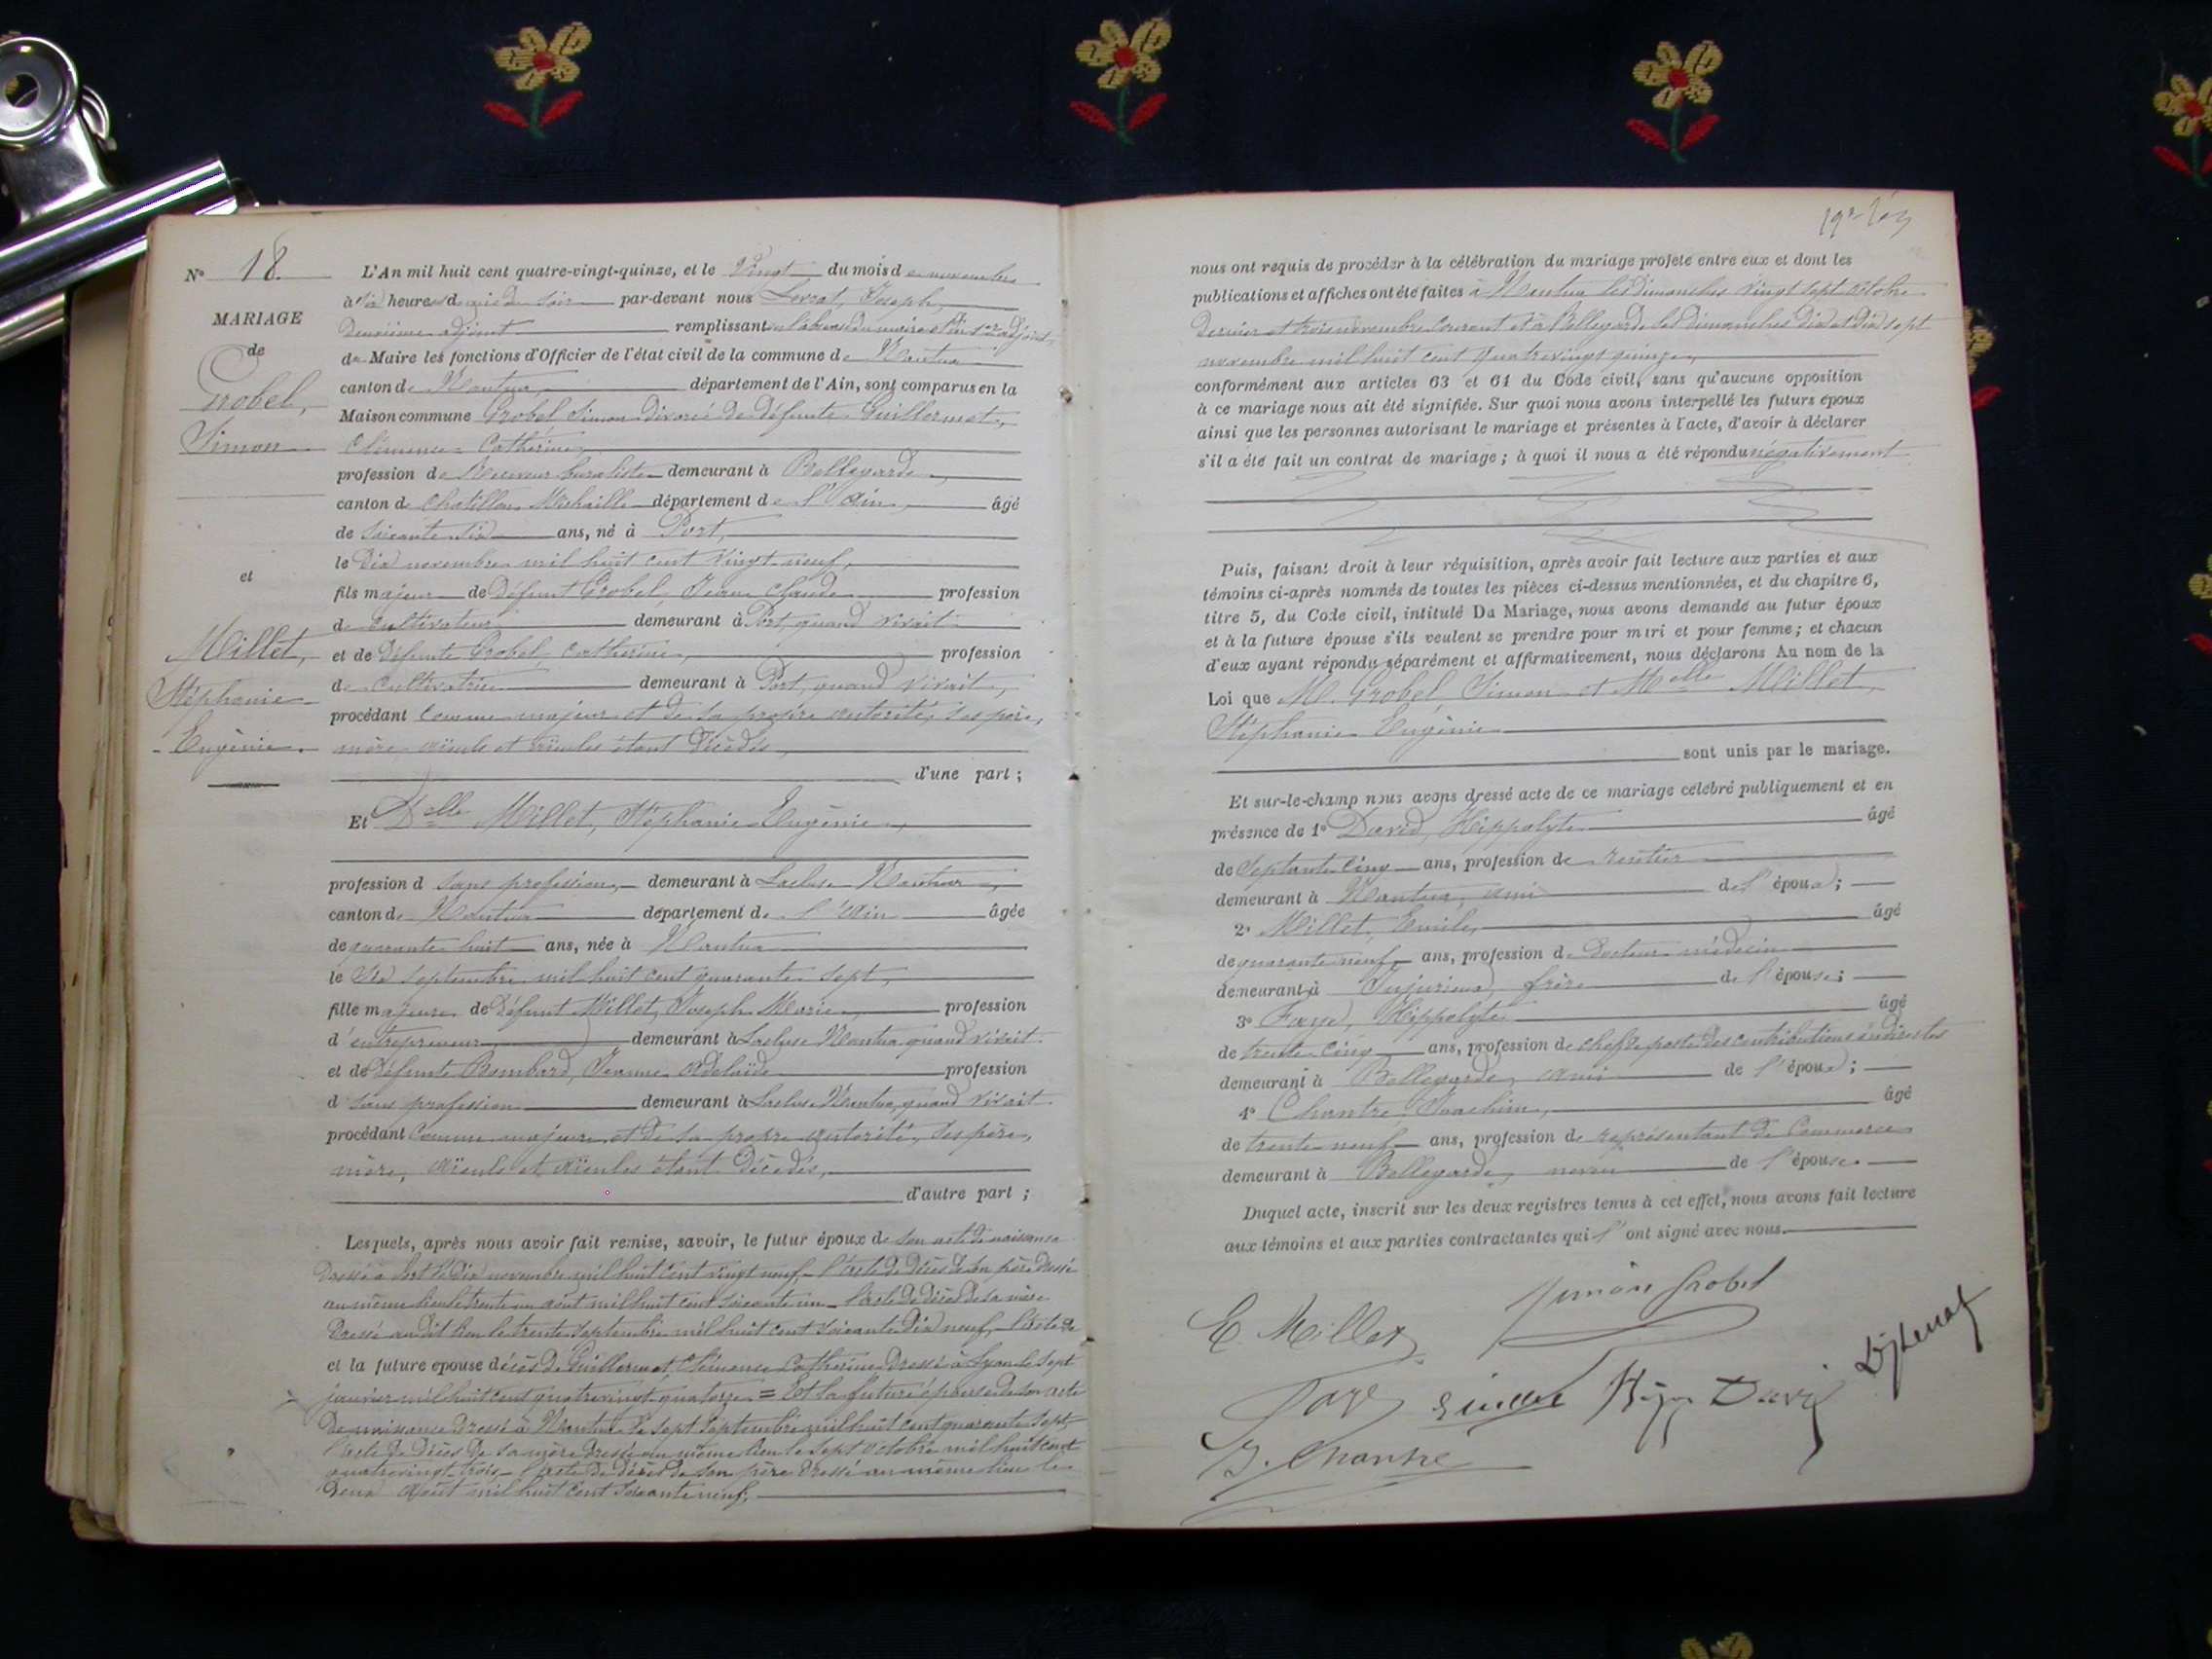 N° 18.
MARIAGE
de
Grobel,
Simon
et
Millet,
Stéphanie
Eugénie.
L'An mil huit cent quatre-vingt-quinze, et le Vingt du mois de novembre
à six heures du soir par-devant nous Levrat, Joseph,
Deuxième adjoint remplissant en l'absence du maire et du 1er adjoint
de Maire les fonctions d'Officier de l'état civil de la commune de Nantua
canton de Nantua, département de l'Ain, sont comparus en la
Maison commune Grobel Simon divorcé de défunte Guillermet,
Clémence Catherine,
profession de Receveur buraliste demeurant à Bellegarde,
canton de Chatillon Michaille département de l'Ain, âgé
de soixante six ans, né à Port,
le Dix novembre mil huit cent vingt neuf,
fils majeur de Défunt Grobel, Jean Claude profession
de cultivateur demeurant à Port, quand vivait
et de défunte Grobel, Catherine, profession
de cultivatrice demeurant à Port, quand vivait,
procédant comme majeur et de sa propre autorité, ses père,
mère, aïeuls et aïeules étant décédés,
d'une part ;
Et Delle Millet, Stéphanie Eugénie,
profession d sans profession, demeurant à Lacluse Nantua,
canton de Nantua département de l'Ain âgée
de quarante huit ans, née à Nantua
le Six septembre mil huit cent quarante sept,
fille majeure de Défunt Millet, Joseph Marie, profession
d'entrepreneur, demeurant à Lacluse Nantua quand vivait
et de Défunte Bombard, Jeanne Adelaïde profession
d sans profession demeurant à Lacluse Nantua, quand vivait
procédant comme majeure et de sa propre autorité, ses père,
mère, aïeuls et aïeules étant décédés,
d'autre part ;
Lesquels, après nous avoir fait remise, savoir, le futur époux de son acte de naissance
dressé à Port le dix novembre mil huit cent vingt neuf, l'acte de décès de son père dressé
au même lieu le trente un août mil huit cent soixante un, l'acte de décès de sa mère
dressé au dit lieu le trente septembre mil huit cent soixante dix neuf, l'acte de
et la future épouse décès de Guillermet, Clémence Catherine dressé à Lyon le sept
janvier mil huit cent quatrevingt quatorze = Et la future épouse de son acte
de naissance dressé à Nantua le sept septembre mil huit cent quarante sept,
l'acte de décès de sa mère dressé au même lieu le sept octobre mil huit cent
quatrevingt trois, l'acte de décès de son père dressé au même lieu le
deux août mil huit cent soixante neuf,
nous ont requis de procéder à la célébration du mariage projeté entre eux et dont les
publications et affiches ont été faites à Nantua les dimanches vingt sept octobre
dernier et trois novembre courant et à Bellegarde les dimanches dix et dix sept
novembre mil huit cent quatrevingt quinze,
conformément aux articles 63 et 64 du Code civil, sans qu'aucune opposition
à ce mariage nous ait été signifiée. Sur quoi nous avons interpellé les futurs époux
ainsi que les personnes autorisant le mariage et présentes à l'acte, d'avoir à déclarer
s'il a été fait un contrat de mariage ; à quoi il nous a été répondu négativement
Puis, faisant droit à leur réquisition, après avoir fait lecture aux parties et aux
témoins ci-après nommés de toutes les pièces ci-dessus mentionnées, et du chapitre 6,
titre 5, du Code civil, intitulé Du Mariage, nous avons demandé au futur époux
et à la future épouse s'ils veulent se prendre pour mari et pour femme ; et chacun
d'eux ayant répondu séparément et affirmativement, nous déclarons Au nom de la
Loi que M. Grobel, Simon et Melle Millet,
Stéphanie Eugénie
sont unis par le mariage.
Et sur-le-champ nous avons dressé acte de ce mariage célébré publiquement et en
présence de 1° David, Hippolyte âgé
de Septante cinq ans, profession de rentier
demeurant à Nantua, ami de l'époux ;
2° Millet, Emile, âgé
de quarante neuf ans, profession de Docteur médecin
demeurant à Jujurieux, frère de l'épouse ;
3° Faye, Hippolyte âgé
de trente cinq ans, profession de chef de poste des contributions indirectes
demeurant à Bellegarde, ami de l'époux ;
4° Chantre, Joachim, âgé
de trente neuf ans, profession de représentant de commerce
demeurant à Bellegarde, neveu de l'épouse.
Duquel acte, inscrit sur les deux registres tenus à cet effet, nous avons fait lecture
aux témoins et aux parties contractantes qui l'ont signé avec nous.
Simon Grobel
E. Millet
Faye
David
J. Chantre